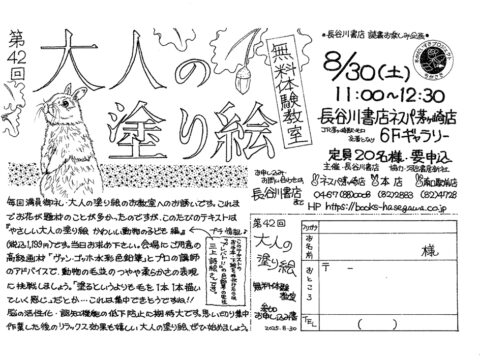 第42回
大人の
塗り絵
無料体験教室
お申し込み・
お問い合わせは
長谷川書店
まで
●長谷川書店 読書お楽しみ企画●
8/30(土)
11:00~12:30
長谷川書店ネスパ茅ヶ崎店
JR茅ヶ崎駅北口
6Fギャラリー
定員20名様・要申込
主催・長谷川書店
ネスパ茅ヶ崎店
本店
HP https://books-hasegawa.co.jp
毎回満員御礼、大人の塗り絵のお教室へのお誘いです。これま
でお花が題材のことが多かったのですが、このたびのテキストは
『やさしい大人の塗り絵 かわいい動物の子ども編』
(税込1,139円)です。当日お求め下さい。会場にご用意の
高級画材「ヴァン・ゴッホ水彩色鉛筆」とプロの講師
のアドバイスで、動物の毛並のつややかさ柔らかさの表現
に挑戦しましょう。「塗るというよりも毛を1本1本描い
ていく感じ」だとか…これは集中できそうですね!!
脳の活性化・認知機能の低下防止に期待大です。思いっきり集中
作業した後のリラックス効果も嬉しい大人の塗り絵、ぜひ始めましょう。
第42回
大人の
塗り絵
無料体験
教室
参加
お申し込み書
2025.8.30
フリガナ
お名前
様
おところ
〒 -
TEL
( )